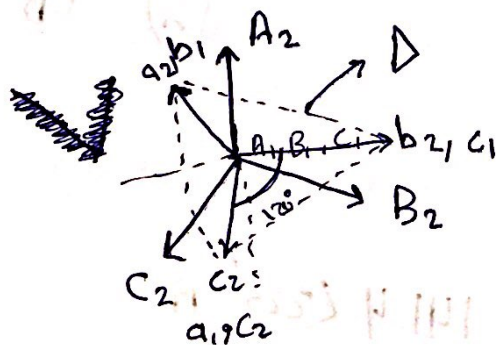 A2
a2, b1
D
A1, B1, C1
b2, c1
B2
120°
C2
C2:
a1, C2